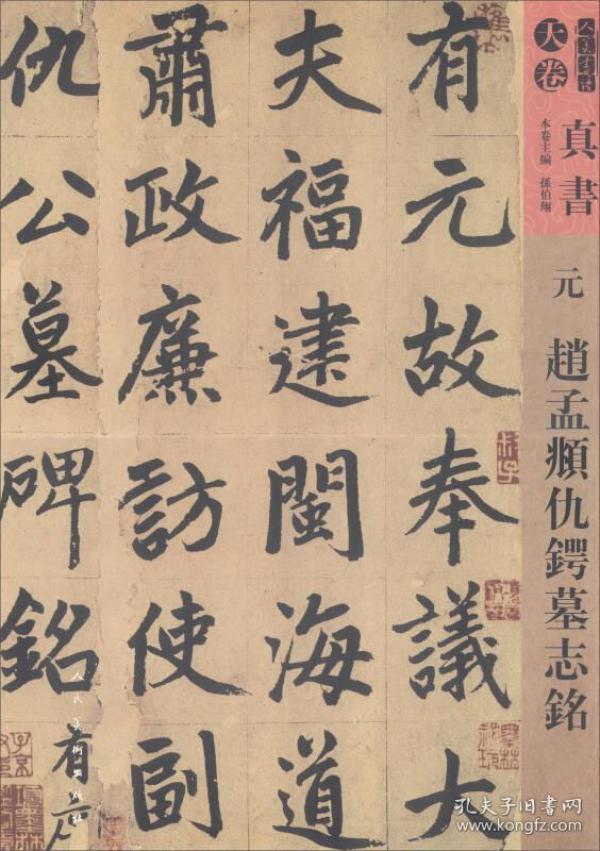 有元故奉議大
夫福建閩海道
肅政廉訪使副
仇公墓碑銘
有元
人美書譜
天卷
真書
本卷主編 孫伯翔
元 趙孟頫仇鍔墓志銘
人民美術出版社
孔夫子旧书网
www.kongfz.com